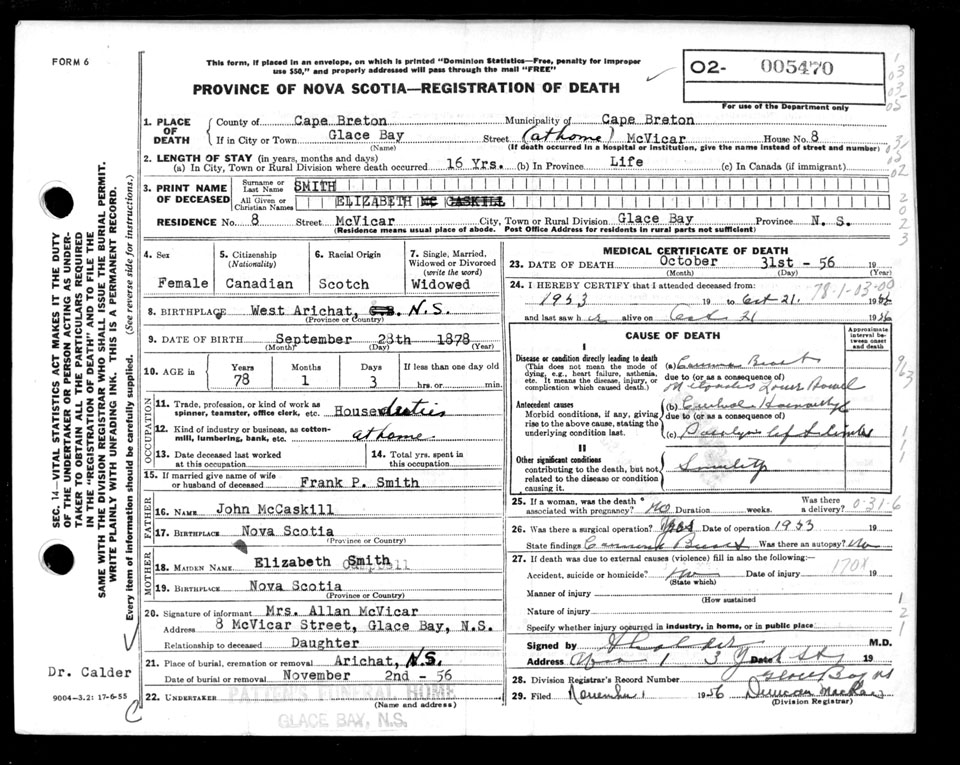 FORM 6
This form, if placed in an envelope, on which is printed "Dominion Statistics—Free, penalty for improper
use $50," and properly addressed will pass through the mail "FREE"
O2- 005470
For use of the Department only
PROVINCE OF NOVA SCOTIA—REGISTRATION OF DEATH
1. PLACE OF DEATH
County of Cape Breton Municipality of Cape Breton
If in City or Town Glace Bay Street (at home) McVicar House No. 8
(Name) (If death occurred in a hospital or institution, give the name instead of street and number)
2. LENGTH OF STAY (in years, months and days)
(a) In City, Town or Rural Division where death occurred 16 Yrs. (b) In Province Life (c) In Canada (if immigrant)
3. PRINT NAME OF DECEASED
Surname or Last Name SMITH
All Given or Christian Names ELIZABETH MC CASKILL
RESIDENCE No. 8 Street McVicar City, Town or Rural Division Glace Bay Province N. S.
(Residence means usual place of abode. Post Office Address for residents in rural parts not sufficient)
4. Sex
Female
5. Citizenship
(Nationality)
Canadian
6. Racial Origin
Scotch
7. Single, Married, Widowed or Divorced
(write the word)
Widowed
8. BIRTHPLACE West Arichat, N.S.
(Province or Country)
9. DATE OF BIRTH September 28th 1878
(Month) (Day) (Year)
10. AGE in
Years Months Days If less than one day old
78 1 3 hrs. or min.
OCCUPATION
11. Trade, profession, or kind of work as
spinner, teamster, office clerk, etc. House duties
12. Kind of industry or business, as cotton-
mill, lumbering, bank, etc. at home
13. Date deceased last worked
at this occupation
14. Total yrs. spent in
this occupation
15. If married give name of wife
or husband of deceased Frank P. Smith
FATHER
16. NAME John McCaskill
17. BIRTHPLACE Nova Scotia
(Province or Country)
MOTHER
18. MAIDEN NAME Elizabeth Smith
19. BIRTHPLACE Nova Scotia
(Province or Country)
20. Signature of informant Mrs. Allan McVicar
Address 8 McVicar Street, Glace Bay, N.S.
Relationship to deceased Daughter
21. Place of burial, cremation or removal Arichat, N.S.
Date of burial or removal November 2nd - 56
22. UNDERTAKER PATTEN'S FUNERAL HOME
(Name and address)
GLACE BAY, N.S.
MEDICAL CERTIFICATE OF DEATH
23. DATE OF DEATH October 31st - 56 19
(Month) (Day) (Year)
24. I HEREBY CERTIFY that I attended deceased from:
78-1-03-00
1953 19 to Oct 21. 1956
and last saw her alive on Oct 21 1956
CAUSE OF DEATH
Approximate interval between onset and death
I
Disease or condition directly leading to death
(This does not mean the mode of
dying, e.g., heart failure, asthenia,
etc. It means the disease, injury, or
complication which caused death.)
(a)
due to (or as a consequence of)
Antecedent causes
Morbid conditions, if any, giving
rise to the above cause, stating the
underlying condition last.
(b)
due to (or as a consequence of)
(c)
II
Other significant conditions
contributing to the death, but not
related to the disease or condition
causing it.
Senility
25. If a woman, was the death
associated with pregnancy? No Duration weeks. Was there a delivery? 0-31-6
26. Was there a surgical operation? Yes Date of operation 1953 19
State findings Was there an autopsy? No
27. If death was due to external causes (violence) fill in also the following:—
Accident, suicide or homicide? Date of injury 170X 19
(State which)
Manner of injury
(How sustained
Nature of injury
Specify whether injury occurred in industry, in home, or in public place
Signed by M.D.
Address Date 19
28. Division Registrar's Record Number Glace Bay NS
29. Filed November 1 1956 Duncan
(Division Registrar)
SEC. 14—VITAL STATISTICS ACT MAKES IT THE DUTY
OF THE UNDERTAKER OR PERSON ACTING AS UNDER-
TAKER TO OBTAIN ALL THE PARTICULARS REQUIRED
IN THE "REGISTRATION OF DEATH" AND TO FILE THE
SAME WITH THE DIVISION REGISTRAR WHO SHALL ISSUE THE BURIAL PERMIT.
WRITE PLAINLY WITH UNFADING INK. THIS IS A PERMANENT RECORD.
Every item of information should be carefully supplied. (See reverse side for instructions.)
Dr. Calder
9004—3.2: 17-6-55